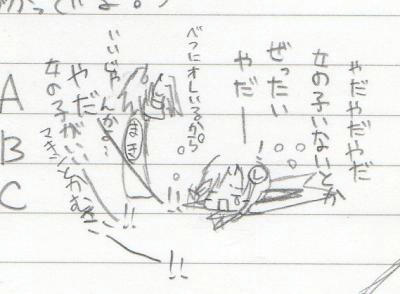 やだやだやだ
女の子いないとか
ぜったい
やだー
し
べつにオレいるから。。
いいじゃ
んか。。
まき
!!
やだ
女の子がいい
!!
!!
A
B
C